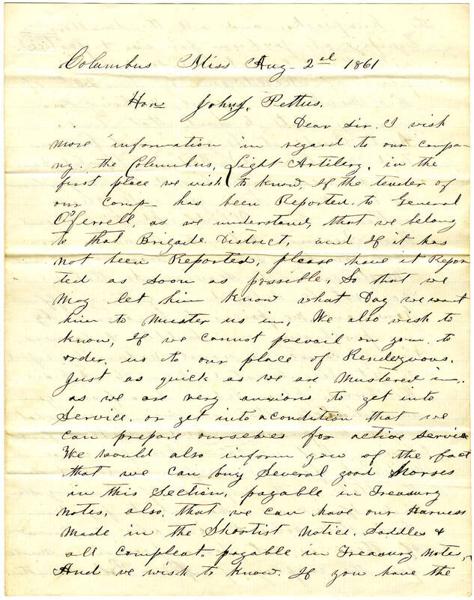 Columbus Miss Aug 2nd 1861
Hon John J. Pettus.
Dear Sir, I wish
more information in regard to our compa-
ny. the Columbus, Light Artilery, in the
first place we wish to know, If the tender of
our Comp has been Reported, to General
O'ferrell, as we understand, that we belong
to that Brigade District, and If it has
not been Reported, please have it Repor
ted as soon as possible, So that we
may let him know what Day we want
him to Muster us in, We also wish to
know, If we cannot prevail on you to
order, us to our place of Rendezvous.
Just as quick as we are Mustered in.
as we are very anxious to get into
Service. or get into a condition that we
can prepare ourselves for active Service
We would also inform you of the fact
that we can buy Several good Horses
in this Section, payable in Treasury
Notes, also, that we can have our Harness
Made in the Shortist Notice. Saddles &
all Compleat. payable in Treasury Notes,
And we wish to know. If you have the